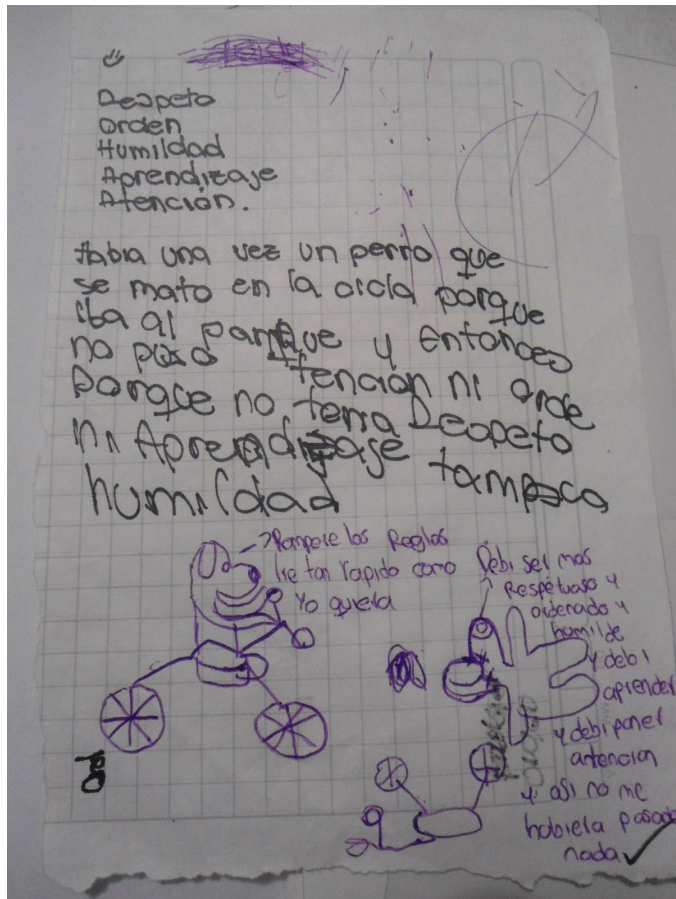 Respeto
Orden
Humildad
Aprendizaje
Atención.
Habia una vez un perro que
se mato en la cicla porque
iba al parque y entonces
no puso atención ni orde
porque no tenia Respeto
ni Aprendizaje tampoco
humildad
Romperé las Reglas
iré tan rapido como
Yo quiera
Debi ser mas
Respetuoso y
ordenado y
humilde
y debi
aprender
y debi poner
antencion
y asi no me
hubiela pasado
nada